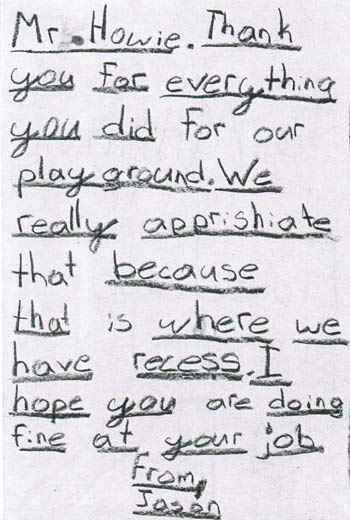 Mr. Howie. Thank
you for everything
you did for our
play ground. We
really apprishiate
that because
that is where we
have recess. I
hope you are doing
fine at your job
From,
Jason